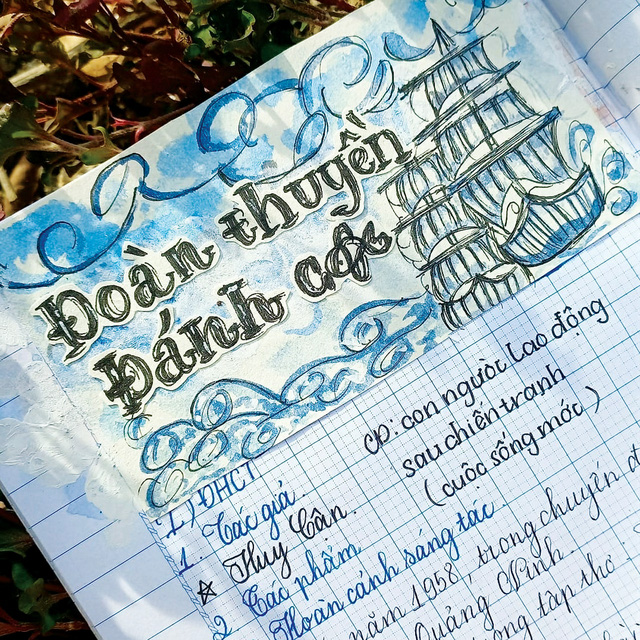 Đoàn thuyền
Đánh cá
CĐ: con người lao động
sau chiến tranh
(cuộc sống mới)
I) ĐHCT
1. Tác giả
Huy Cận.
2. Tác phẩm
Hoàn cảnh sáng tác
năm 1958, trong chuyến đ
Quảng Ninh.
trong tập thơ